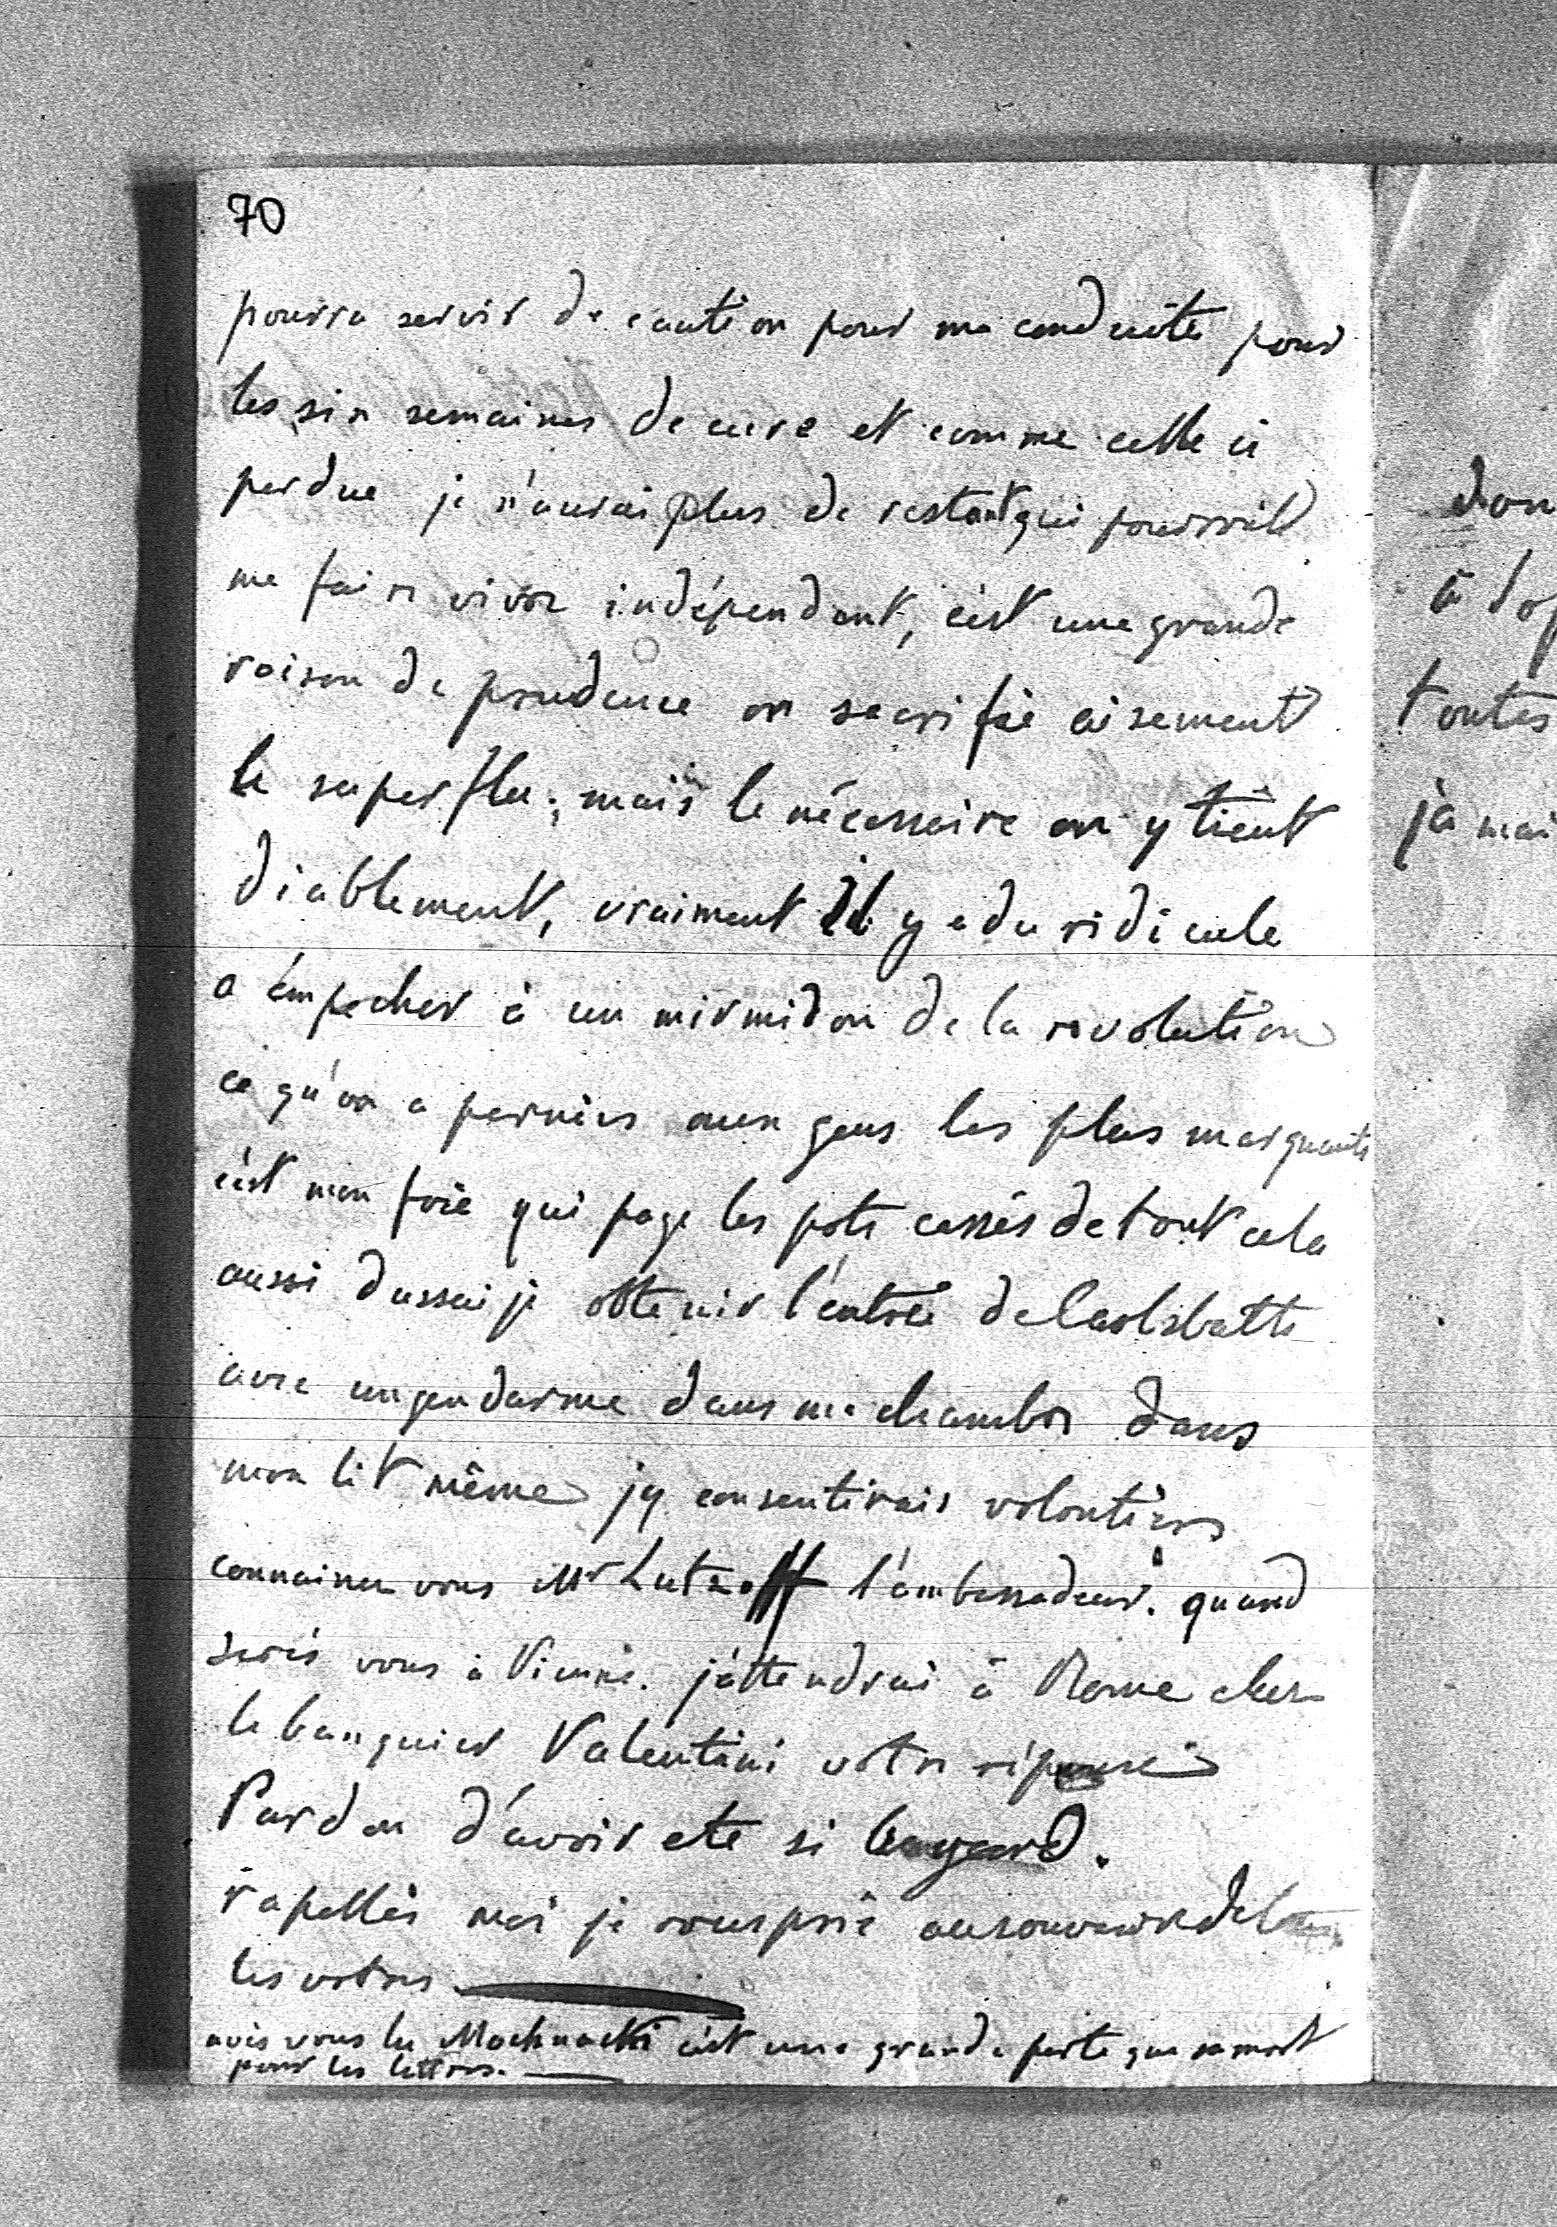 70
pourra servir de caution pour ma conduite pour
les six semaines de cure et comme celle ci
perdue je n'aurai plus de restant qui pourroit
me faire vivre indépendant, c'est une grande
raison de prudence on sacrifie aisement
le superflu; mais le nécessaire on y tient
diablement, vraiment il y a du ridicule
a émpecher à un mirmidon de la revolution
ce qu'on a permis aux gens les plus marquants
c'est mon foie qui paye les pots cassés de tout cela
aussi dussai je obtenir l'entrée de Carlsbatte
avec un gendarme dans ma chambre dans
mon lit même j'y consentirais volontiers
connaissez vous Mr Lutzoff l'ambassadeur. quand
serés vous à Vienne. j'attendrai à Rome chez
le banquier Valentini votre réponse
Pardon d'avoir ete si bavard.
rapellés moi je vous prie au souvenir de
les votres
avés vous lu Mochnacki c'est une grande perte que sa mort
pour les lettres.
don
à
toutes
jamai